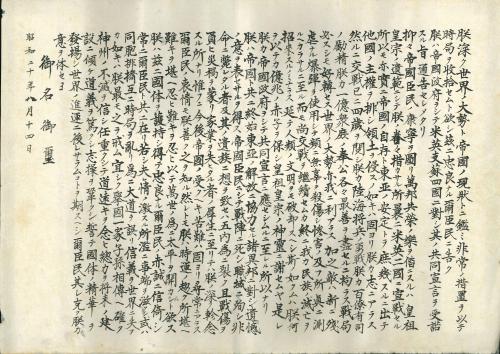 朕深ク世界ノ大勢ト帝國ノ現狀トニ鑑ミ非常ノ措置ヲ以テ
時局ヲ收拾セムト欲シ茲ニ忠良ナル爾臣民ニ告ク
朕ハ帝國政府ヲシテ米英支蘇四國ニ對シ其ノ共同宣言ヲ受諾
スル旨通告セシメタリ
抑々帝國臣民ノ康寧ヲ圖リ萬邦共榮ノ樂ヲ偕ニスルハ皇祖
皇宗ノ遺範ニシテ朕ノ拳々措カサル所曩ニ米英二國ニ宣戰セル
所以モ亦實ニ帝國ノ自存ト東亞ノ安定トヲ庶幾スルニ出テ
他國ノ主權ヲ排シ領土ヲ侵スカ如キハ固ヨリ朕カ志ニアラス
然ルニ交戰已ニ四歲ヲ閱シ朕カ陸海將兵ノ勇戰朕カ百僚有司
ノ勵精朕カ一億衆庶ノ奉公各々最善ヲ盡セルニ拘ラス戰局
必スシモ好轉セス世界ノ大勢亦我ニ利アラス加之敵ハ新ニ殘
虐ナル爆彈ヲ使用シテ頻ニ無辜ヲ殺傷シ慘害ノ及フ所眞ニ測
ルヘカラサルニ至ル而モ尚交戰ヲ繼續セムカ終ニ我カ民族ノ滅亡ヲ
招來スルノミナラス延テ人類ノ文明ヲモ破却スヘシ斯ノ如クムハ朕何
ヲ以テカ億兆ノ赤子ヲ保シ皇祖皇宗ノ神靈ニ謝セムヤ是レ
朕カ帝國政府ヲシテ共同宣言ニ應セシムルニ至レル所以ナリ
朕ハ帝國ト共ニ終始東亞ノ解放ニ協力セル諸盟邦ニ對シ遺憾
ノ意ヲ表セサルヲ得ス帝國臣民ニシテ戰陣ニ死シ職域ニ殉シ非
命ニ斃レタル者及其ノ遺族ニ想ヲ致セハ五內爲ニ裂ク且戰傷ヲ
負ヒ災禍ヲ蒙リ家業ヲ失ヒタル者ノ厚生ニ至リテハ朕ノ深ク軫念
スル所ナリ惟フニ今後帝國ノ受クヘキ苦難ハ固ヨリ尋常ニアラス
爾臣民ノ衷情モ朕善ク之ヲ知ル然レトモ朕ハ時運ノ趨ク所堪ヘ
難キヲ堪ヘ忍ヒ難キヲ忍ヒ以テ萬世ノ爲ニ太平ヲ開カムト欲ス
朕ハ茲ニ國體ヲ護持シ得テ忠良ナル爾臣民ノ赤誠ニ信倚シ
常ニ爾臣民ト共ニ在リ若シ夫レ情ノ激スル所濫ニ事端ヲ滋クシ或ハ
同胞排擠互ニ時局ヲ亂リ爲ニ大道ヲ誤リ信義ヲ世界ニ失フ
カ如キハ朕最モ之ヲ戒ム宜シク擧國一家子孫相傳ヘ確ク
神州ノ不滅ヲ信シ任重クシテ道遠キヲ念ヒ總力ヲ將來ノ建
設ニ傾ケ道義ヲ篤クシ志操ヲ鞏クシ誓テ國體ノ精華ヲ
發揚シ世界ノ進運ニ後レサラムコトヲ期スヘシ爾臣民其レ克ク朕カ
意ヲ體セヨ
御名御璽
昭和二十年八月十四日